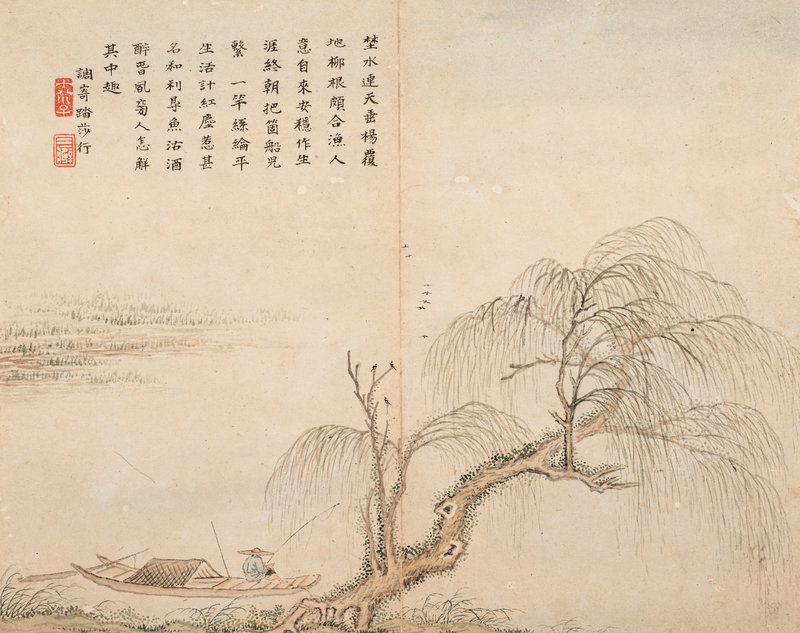 埜水連天垂楊覆
地柳根頗合漁人
意自來安穩作生
涯終朝把箇船兒
繫 一竿絲綸平
生活計紅塵惹甚
名和利㝵魚沽酒
醉旾風旁人怎解
其中趣
調寄踏莎行